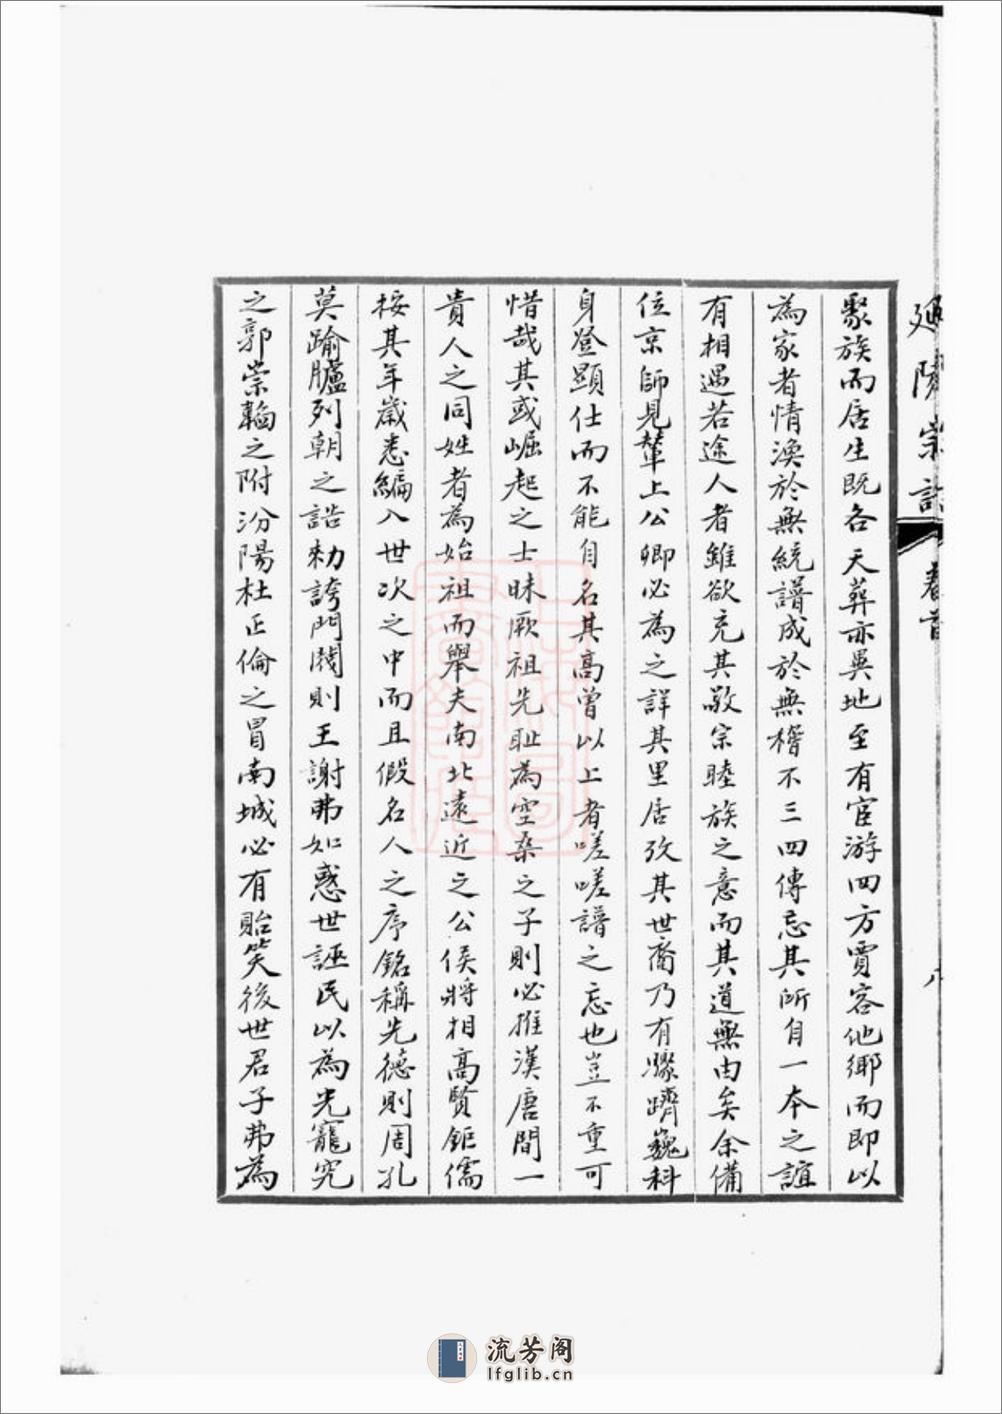 延陵宗譜 卷首 八
聚族而居生既各天葬亦異地至有宦游四方賈客他鄉而即以
為家者情渙於無統譜成於無稽不三四傳忘其所自一本之誼
有相遇若途人者雖欲充其敬宗睦族之意而其道無由矣余備
位京師見輦上公卿必為之詳其里居攷其世裔乃有驟躋巍科
身登顯仕而不能自名其高曾以上者嗟嗟譜之忘也豈不重可
惜哉其或崛起之士昧厥祖先恥為空桑之子則必推漢唐間一
貴人之同姓者為始祖而舉夫南北遠近之公侯將相高賢鉅儒
按其年歲悉編入世次之中而且假名人之序銘稱先德則周孔
莫踰臚列朝之誥勅誇門閥則王謝弗如惑世誣民以為光寵究
之郭崇韜之附汾陽杜正倫之冒南城必有貽笑後世君子弗為
流芳阁
lfglib.cn